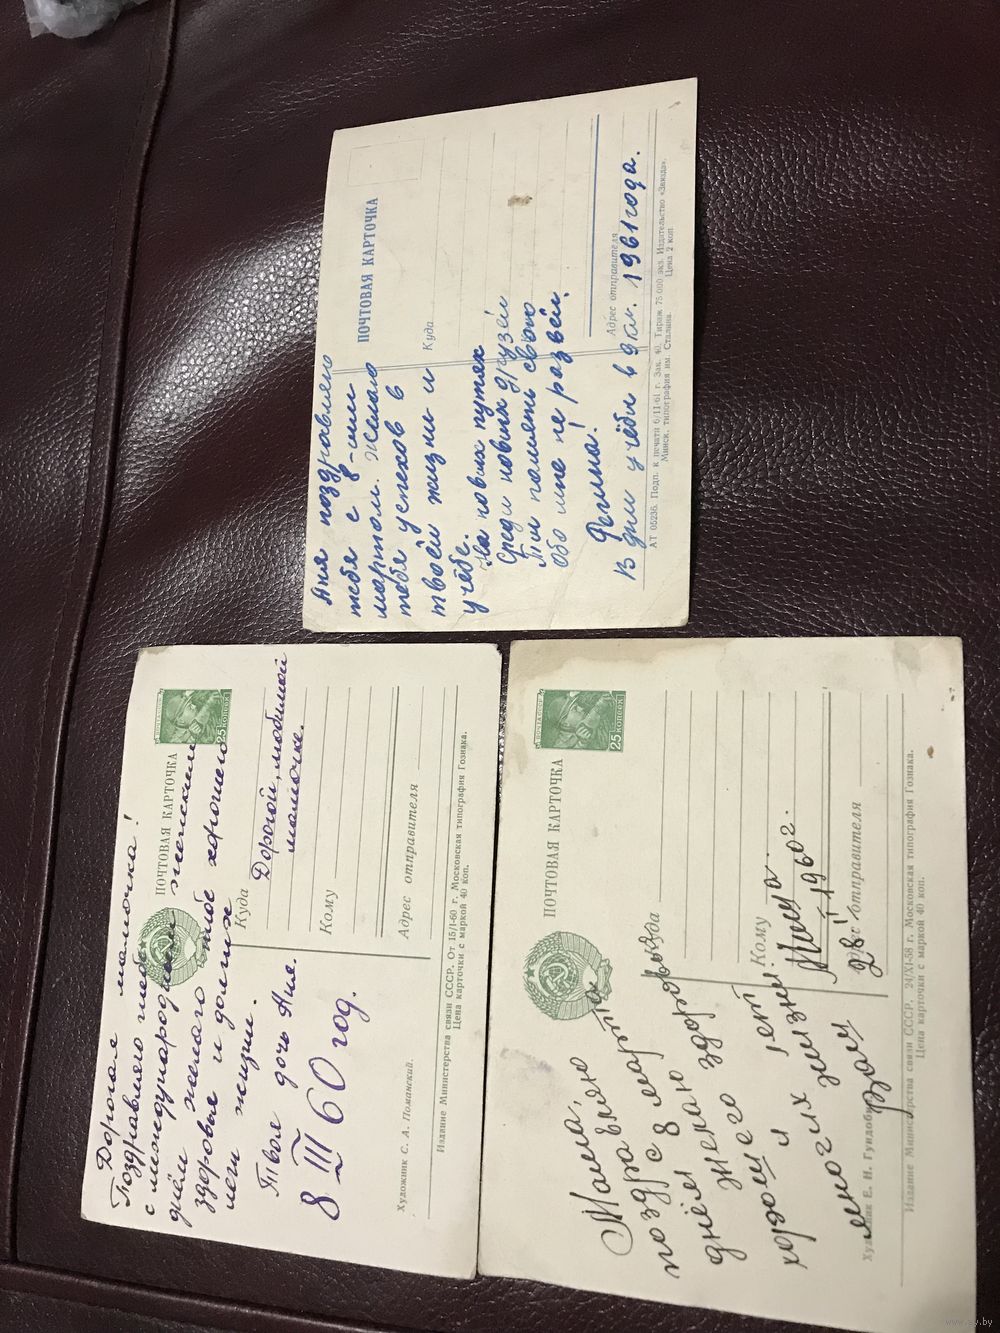 Дорогая мамочка!
Поздравляю тебя
с международным женским
днём желаю тебе хорошего
здоровья и долгих
лет жизни.
Твоя дочь Аня.
8 III 60 год.
Художник С. А. Поманский.
ПОЧТОВАЯ КАРТОЧКА
ПОЧТА СССР
25 КОПЕЕК
Куда
Дорогой, любимой
мамочке.
Кому
Адрес отправителя
Издание Министерства связи СССР. От 15/I-60 г. Московская типография Гознака.
Цена карточки с маркой 40 коп.
Мама,
поздравляю
с 8 март
днём желаю здоровья
хорошего
и
многих лет
жизни.
1960 г.
Художник Е. Н. Гундобин
ПОЧТОВАЯ КАРТОЧКА
ПОЧТА СССР
25 КОПЕЕК
Куда
Кому
Адрес отправителя
Издание Министерства связи СССР. 24/XI-58 г. Московская типография Гознака.
Цена карточки с маркой 40 коп.
Аня поздравляю
тебя с 8-ым
мартом. Желаю
тебе успехов в
твоей жизни и
учёбе.
На новых путях
Среди новых друзей
Ты память свою
Обо мне не развей.
В дни учёбы в 9 кл. 1961 года.
ПОЧТОВАЯ КАРТОЧКА
Куда
Адрес отправителя
АТ 05236. Подп. к печати 6/II-61 г. Зак. 40. Тираж 75 000 экз. Издательство «Звязда».
Минск, типография им. Сталина. Цена 2 коп.
www.ay.by